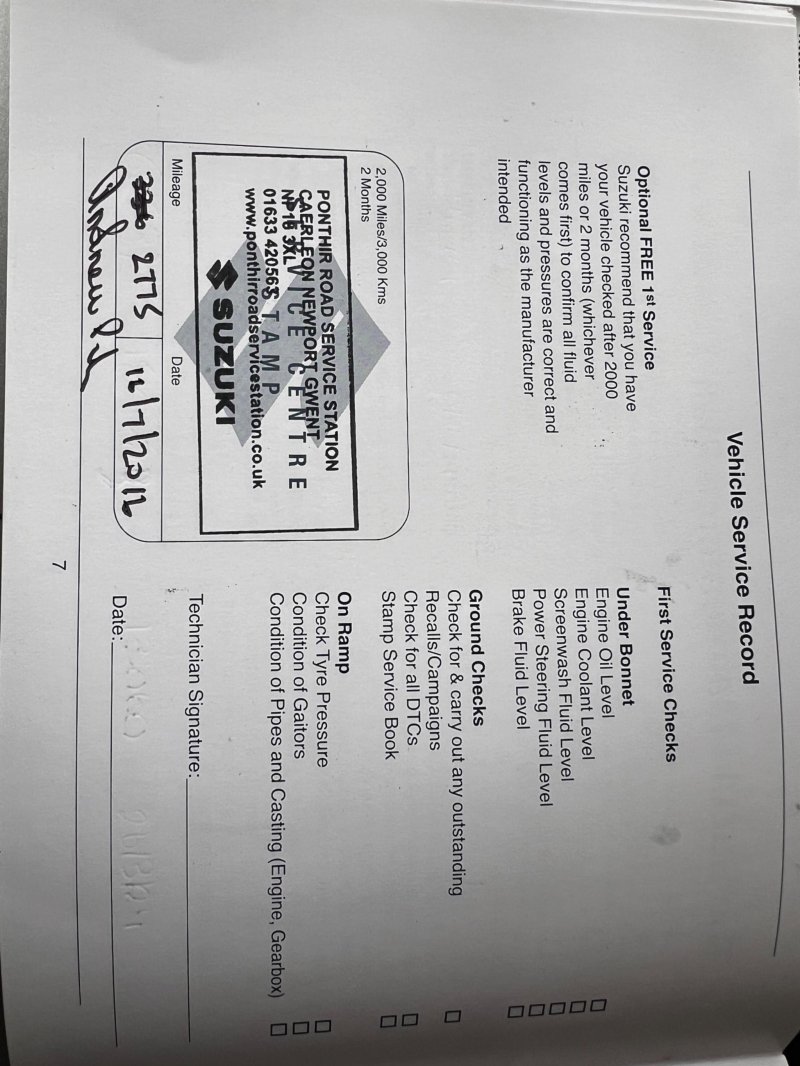 Vehicle Service Record
Optional FREE 1st Service
Suzuki recommend that you have
your vehicle checked after 2000
miles or 2 months (whichever
comes first) to confirm all fluid
levels and pressures are correct and
functioning as the manufacturer
intended
2,000 Miles/3,000 Kms
2 Months
PONTHIR ROAD SERVICE STATION
CAERLEON NEWPORT GWENT
NP18 3XL
01633 420563
www.ponthirroadservicestation.co.uk
SERVICE CENTRE
STAMP
SUZUKI
Mileage Date
2775 12/7/2012
First Service Checks
Under Bonnet
Engine Oil Level
Engine Coolant Level
Screenwash Fluid Level
Power Steering Fluid Level
Brake Fluid Level
Ground Checks
Check for & carry out any outstanding
Recalls/Campaigns
Check for all DTCs
Stamp Service Book
On Ramp
Check Tyre Pressure
Condition of Gaitors
Condition of Pipes and Casting (Engine, Gearbox)
Technician Signature:
Date:
7